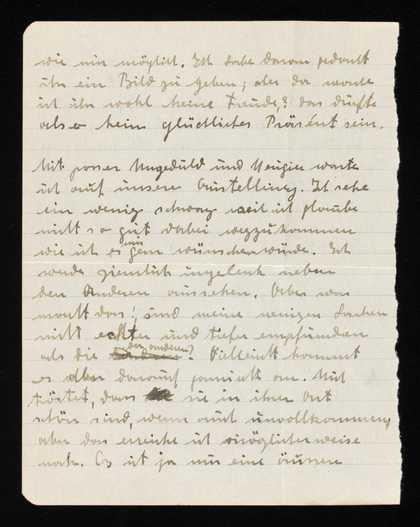 wie nur möglich. Ich habe daran gedacht
ihr ein Bild zu geben; aber da mache
ich ihr wohl keine Freude? das dürfte
also kein glückliches Präsent sein.
Mit grosser Ungeduld und Neugier warte
ich auf unsere Ausstellung. Ich sehe
ein wenig schwarz weil ich glaube
nicht so gut dabei wegzukommen
wie ich es mir gern wünschen würde. Ich
werde ziemlich ungelenk neben
den Anderen aussehen. Aber was
macht das; sind meine wenigen Sachen
nicht echter und tiefer empfunden
als die der anderen? Vielleicht kommt
es aber darauf garnicht an. Mich
tröstet, dass sie in ihrer Art
schön sind, wenn auch unvollkommen,
aber das erreiche ich möglicherweise
noch. Es ist ja nur eine äussere